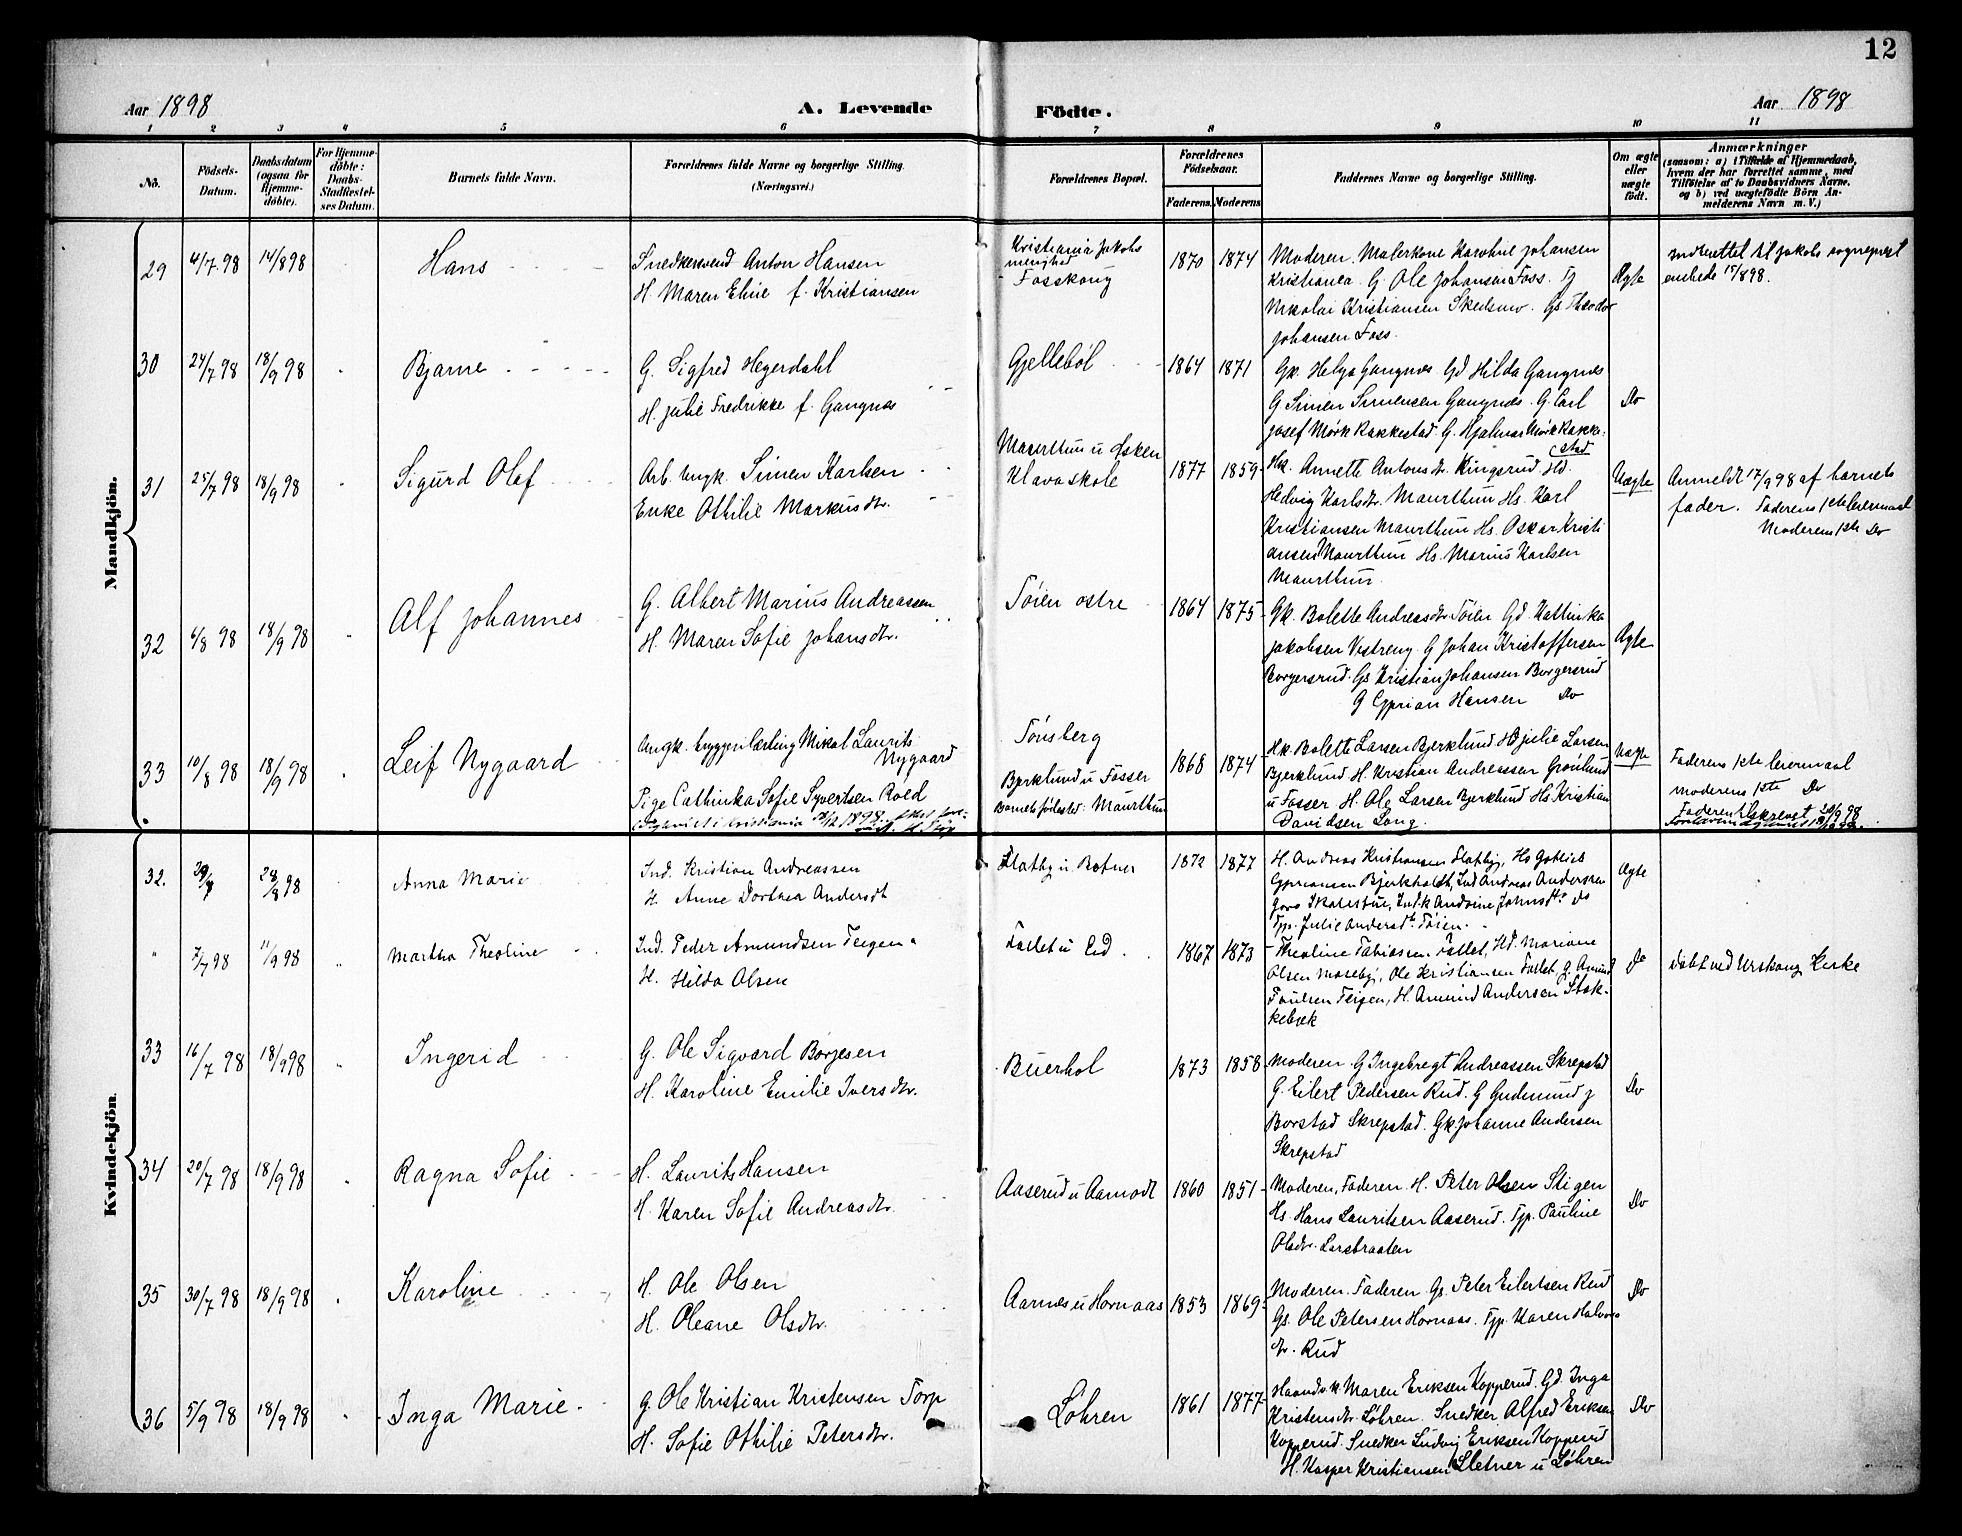 12
Aar 1898
A. Levende
Födte.
Aar 1898
1 2 3 4 5 6 7 8 9 10 11
No.
Födsels-
Datum.
Daabsdatum
(ogsaa for
Hjemme-
döbte).
For Hjemme-
döbte:
Daabs-
Stadfestel-
ses Datum.
Barnets fulde Navn.
Forældrenes fulde Navne og borgerlige Stilling.
(Næringsvei.)
Forældrenes Bopæl.
Forældrenes
Födselsaar.
Faderens. Moderens.
Faddernes Navne og borgerlige Stilling.
Om ægte
eller
uægte
födt.
Anmærkninger
(saasom: a) i Tilfælde af Hjemmedaab,
hvem der har forrettet samme, med
Tilföielse af to Daabsvidners Navne,
og b) ved uægtefödte Börn An-
melderens Navn m. V.)
Mandkjön.
29 4/7.98 14/8 98 Hans
Snedkersvend Anton Hansen
H. Maren Eline f. Kristiansen
Kristiania Jakobs
menighed
Fosskoug
1870 1874
Moderen. Malerkone Karoline Johansen
Kristiania. G. Ole Johansen Foss. Tj
Nikolai Kristiansen Skedsmo. Gs. Theodor
Johansen Foss.
Ægte
Indberettet til Jakobs sogneprest
embede 15/8 98.
30 24/7 98 18/9 98 Bjarne
G. Sigfred Hegerdahl
H. Julie Fredrikke f. Gangnæs
Gjellebøl
1864 1871
Gk. Helga Gangnæs Gd Hilda Gangnæs
G Simen Simensen Gangnæs. G. Carl
Josef Mørk Rakkestad. G. Hjalmar Mørk Rakke-
stad
Do
31 25/7 98 18/9 98 Sigurd Olaf
Arb. Ungk. Simen Karlsen
Enke Othilie Markusdtr.
Maurthun u Asken
Klava skole
1877 1859
Hk. Annette Antonsdtr. Kingsrud. Hd.
Hedvig Karlsdtr. Maurthun Hs. Karl
Kristiansen Maurthun Hs. Oskar Kristi
ansen Maurthun Hs. Marius Karlsen
Maurthun.
Uægte
Anmeldt 17/9 98 af barnets
fader. Faderens 1ste leiermaal
Moderens 1ste Do
32 6/8 98 18/9 98 Alf Johannes
G. Albert Marius Andreassen
H. Maren Sofie Johansdtr.
Tøien østre
1864 1875
Gk. Bolette Andreasdtr. Tøien Gd. Kathinka
Jakobsen Vestreng. G Johan Kristoffersen
Borgersrud. Gs Kristian Johansen Borgersrud
G Cyprian Hansen Do
Ægte
33 10/8 98 18/9 98 Leif Nygaard
Ungk. bryggerilærling Mikal Laurits
Nygaard
Pige Cathinka Sofie Syvertsen Roed
Tønsberg
Bjerklund u Fosser
Barnets fødested: Maurthun
1868 1874
Hk. Bolette Larsen Bjerklund Hd Julie Larsen
Bjerklund H. Kristian Andreassen Grønlund
u Fosser H. Ole Larsen Bjerklund Hs. Kristian
Davidsen Lang.
Uægte
Faderens 1ste leiermaal
moderens 1ste Do
Faderen tilskrevet 20/9 98
Kvindekjön.
32. 29/7 28/8 98 Anna Marie
Ind. Kristian Andreassen
H. Anne Dorthea Andersdt
Slatby u. Botner
1872 1877
H. Andreas Kristiansen Slatby, Hs Gotlieb
Cypriansen Bjerkholdt, Ind Andreas Andersen
Ind.k Andrine Johnsdt. Do
Tp. Julie Andersdt. Tøien.
Ægte
" 7/7 98 11/9 98 Martha Theoline
Ind. Peder Amundsen Teigen
H. Hilda Olsen
Fallet u Eid
1867 1873
Theoline Tobiassen Fallet, Hd. Mariane
Olsen Moseby, Ole Kristiansen Fallet, G. Amund
Paulsen Teigen, H. Amund Andersen Stok-
kebæk
Do
døbt ved Urskoug Kirke
33 16/7 98 18/9 98 Ingerid
G. Ole Sigvard Borjesen
H. Karoline Emilie Iversdtr.
Buerhol
1873 1858
Moderen G Ingebregt Andreassen Skrepstad
G. Eilert Pedersen Rud. G Gudmund J
Borstad Skrepstad. Gk Johanne Andersen
Skrepstad
Do
34 20/7 98 18/9 98 Ragna Sofie
H. Laurits Hansen
H. Karen Sofie Andreasdtr.
Aaserud u Aamodt
1860 1851
Moderen, Faderen. H. Peter Olsen Stigen
Hs. Hans Lauritsen Aaserud. Tjp. Pauline
Olsdtr. Larsbraaten
Do
35 30/7 98 18/9 98 Karoline
H. Ole Olsen
H. Oleane Olsdtr.
Aarnes u Hornaas
1853 1869
Moderen. Faderen. Gs. Peter Eilertsen Rud
Gs. Ole Petersen Hornaas. Tjp. Karen Halvors
dtr. Rud
Do
36 5/9 98 18/9 98 Inga Marie
G. Ole Kristian Kristensen Torp
H. Sofie Othilie Petersdtr.
Løhren
1861 1877
Haandv.k. Maren Eriksen Kopperud. Gd. Inga
Kristensdtr. Løhren. Snedker Alfred Eriksen
Kopperud. Snedker Ludvig Eriksen Kopperud
H. Kasper Kristiansen Sletner u Løhren
Do